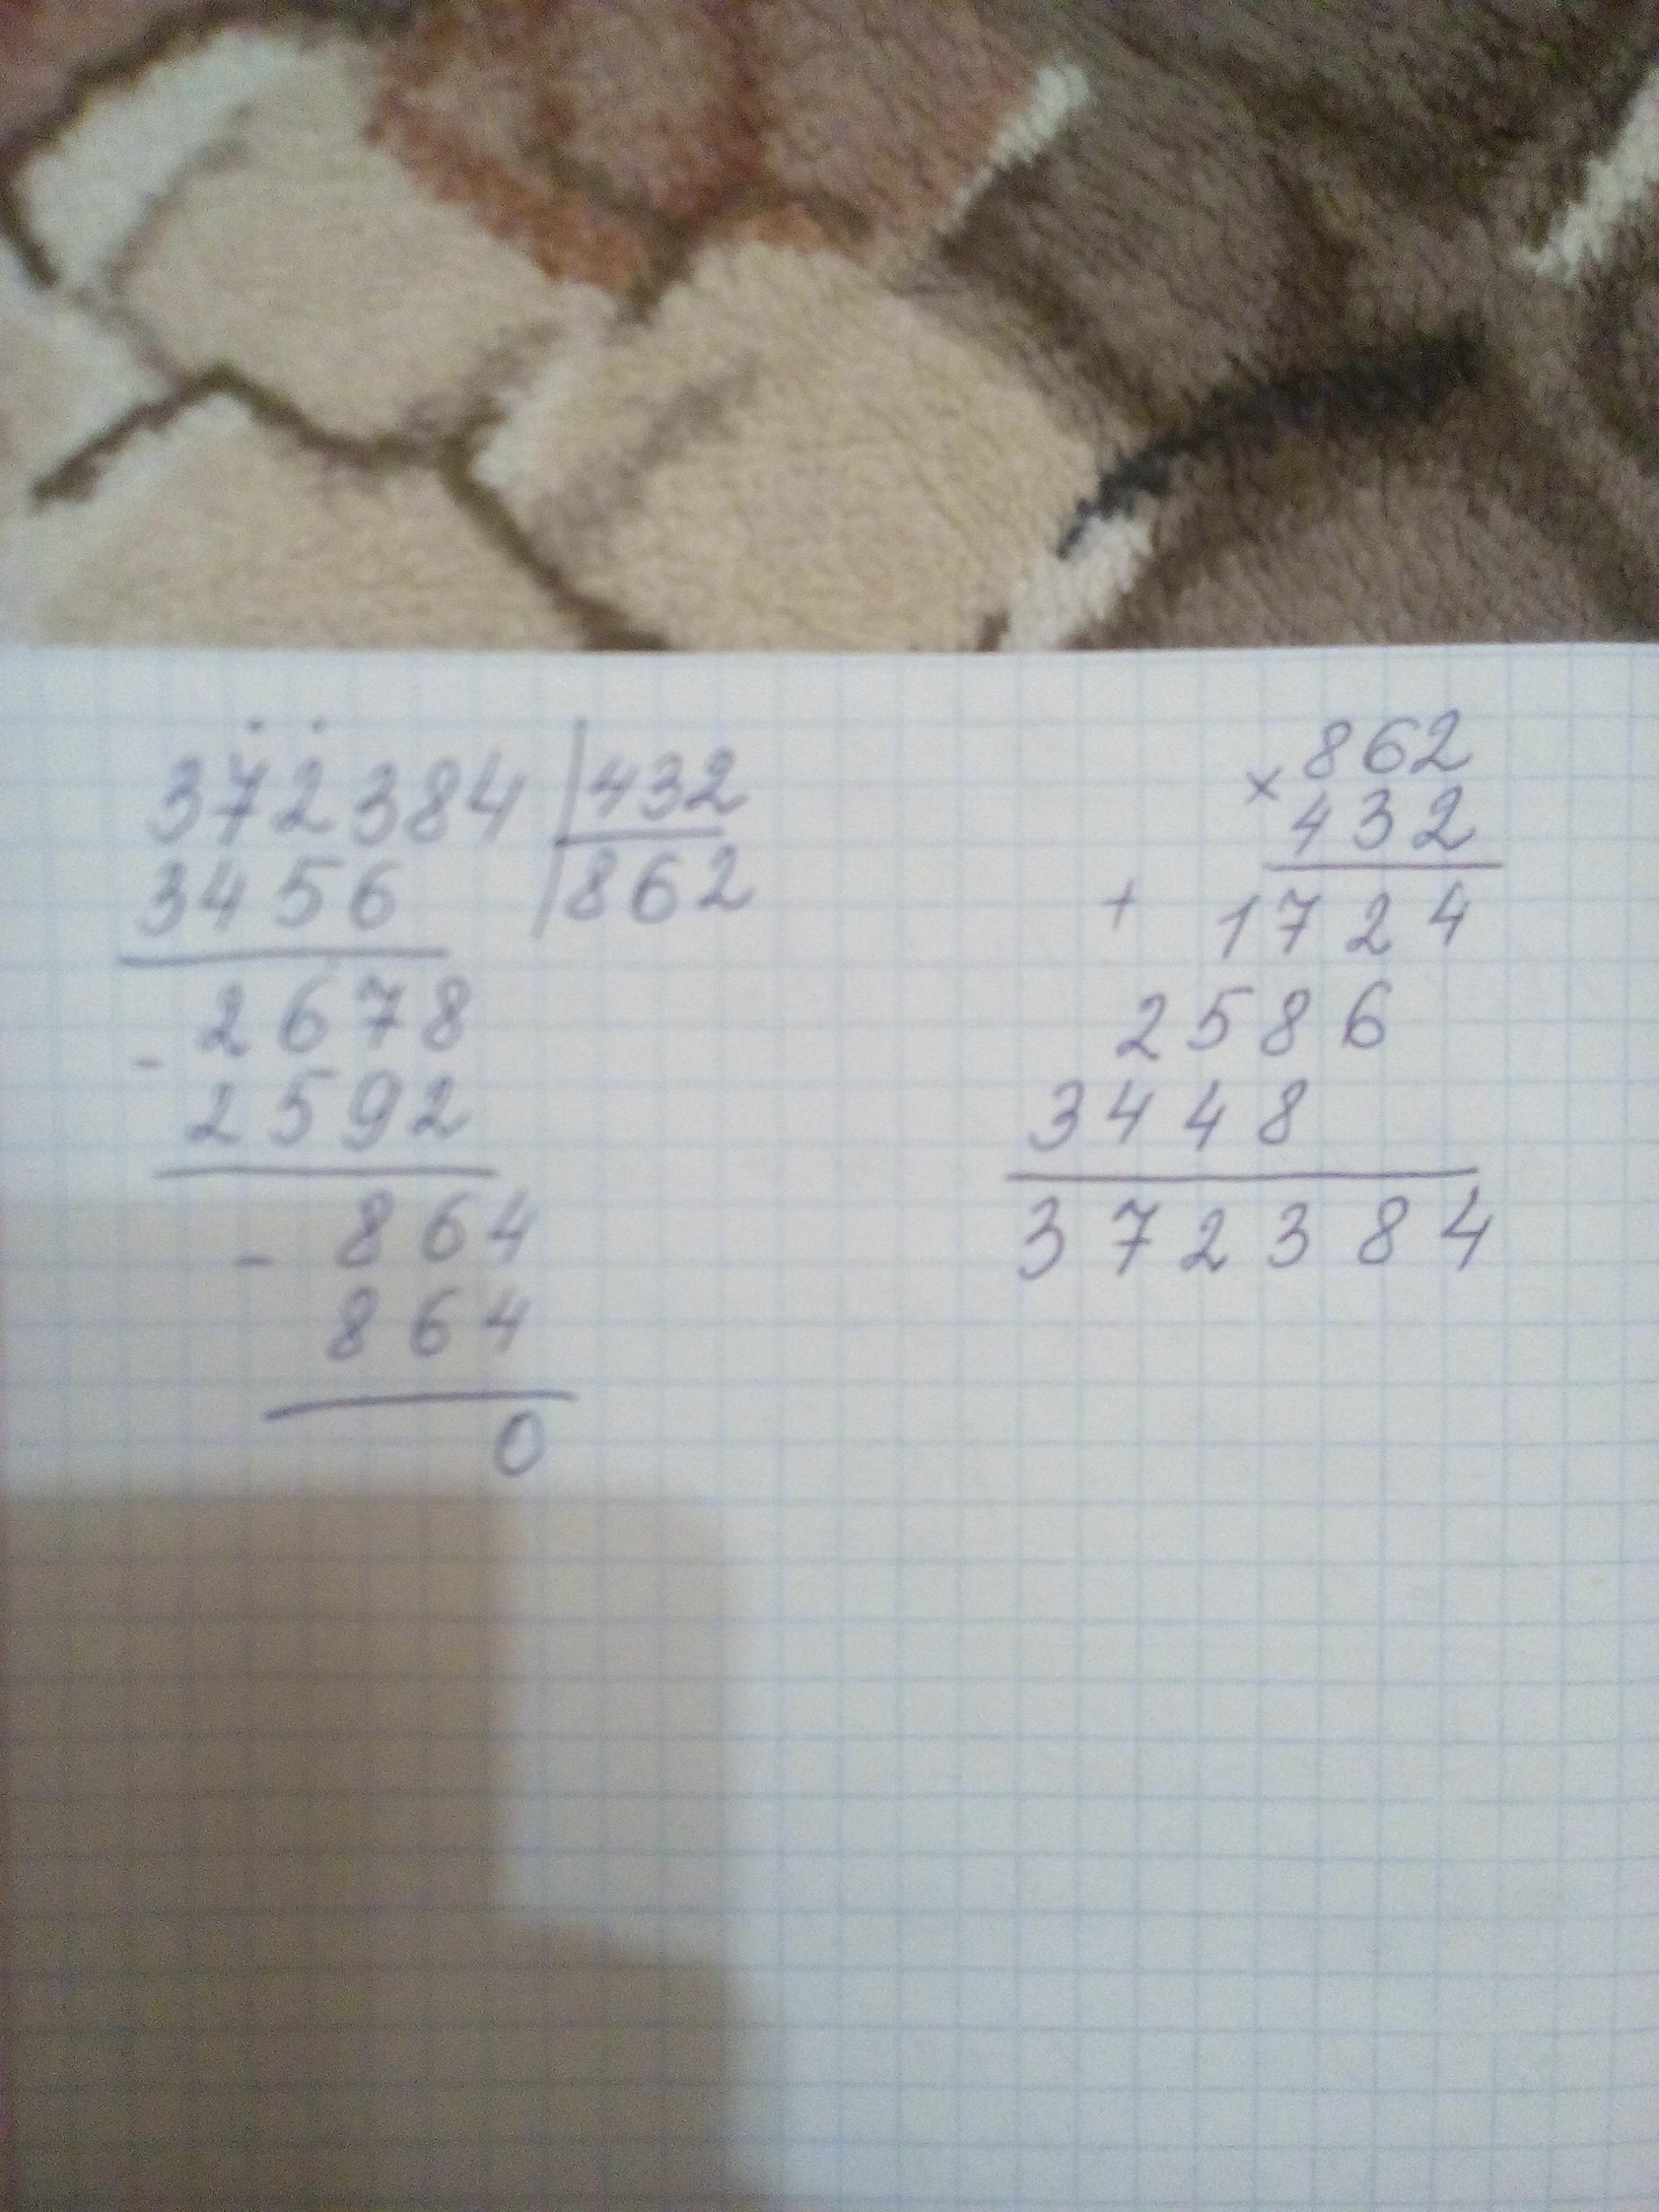 372384 | 432
3456 | 862
2678
- 2592
- 864
864
0
× 862
432
+ 1724
2586
3448
372384